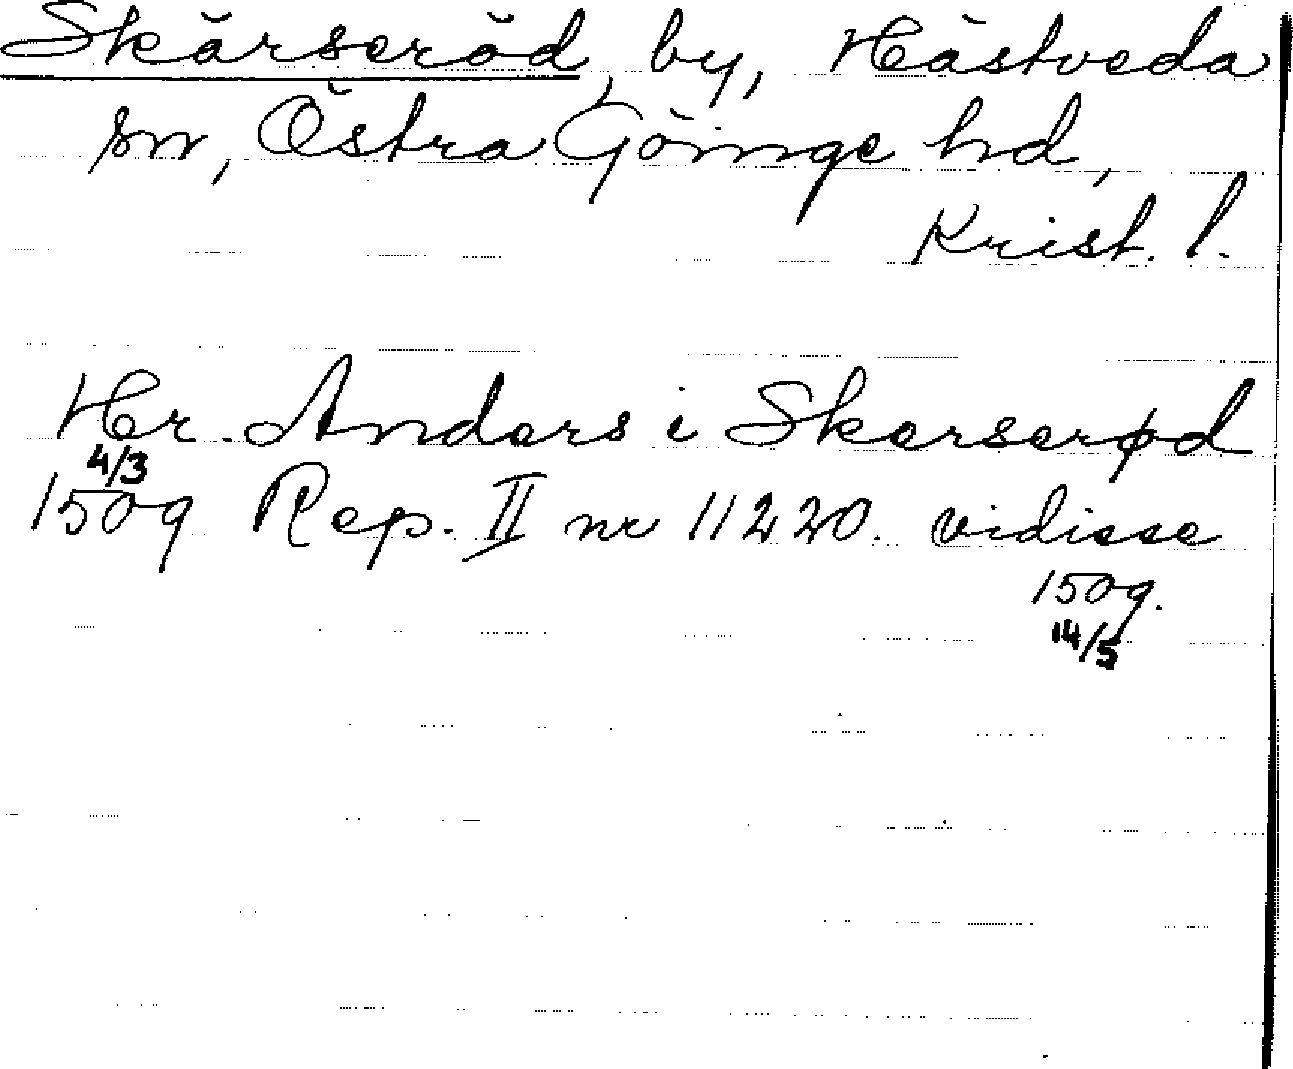 Skärseröd, by, Hästveda
sn, Östra Göinge hd,
Krist. l.
Hr. Anders i Skerserød
4/3
1509 Rep. II nr 11220. vidisse
1509.
14/5